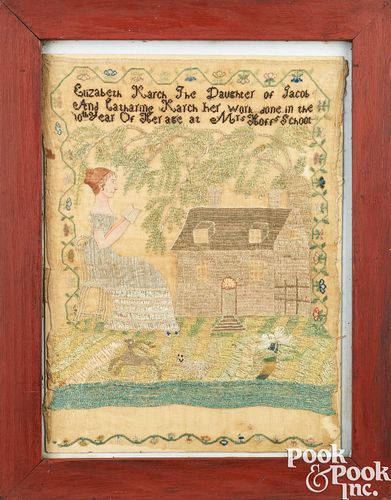 Elizabeth Karch The Daughter of Jacob
And Catharine Karch her work done in the
10th Year Of Her age at Mrs Hoffs School
POOK
& POOK
INC.